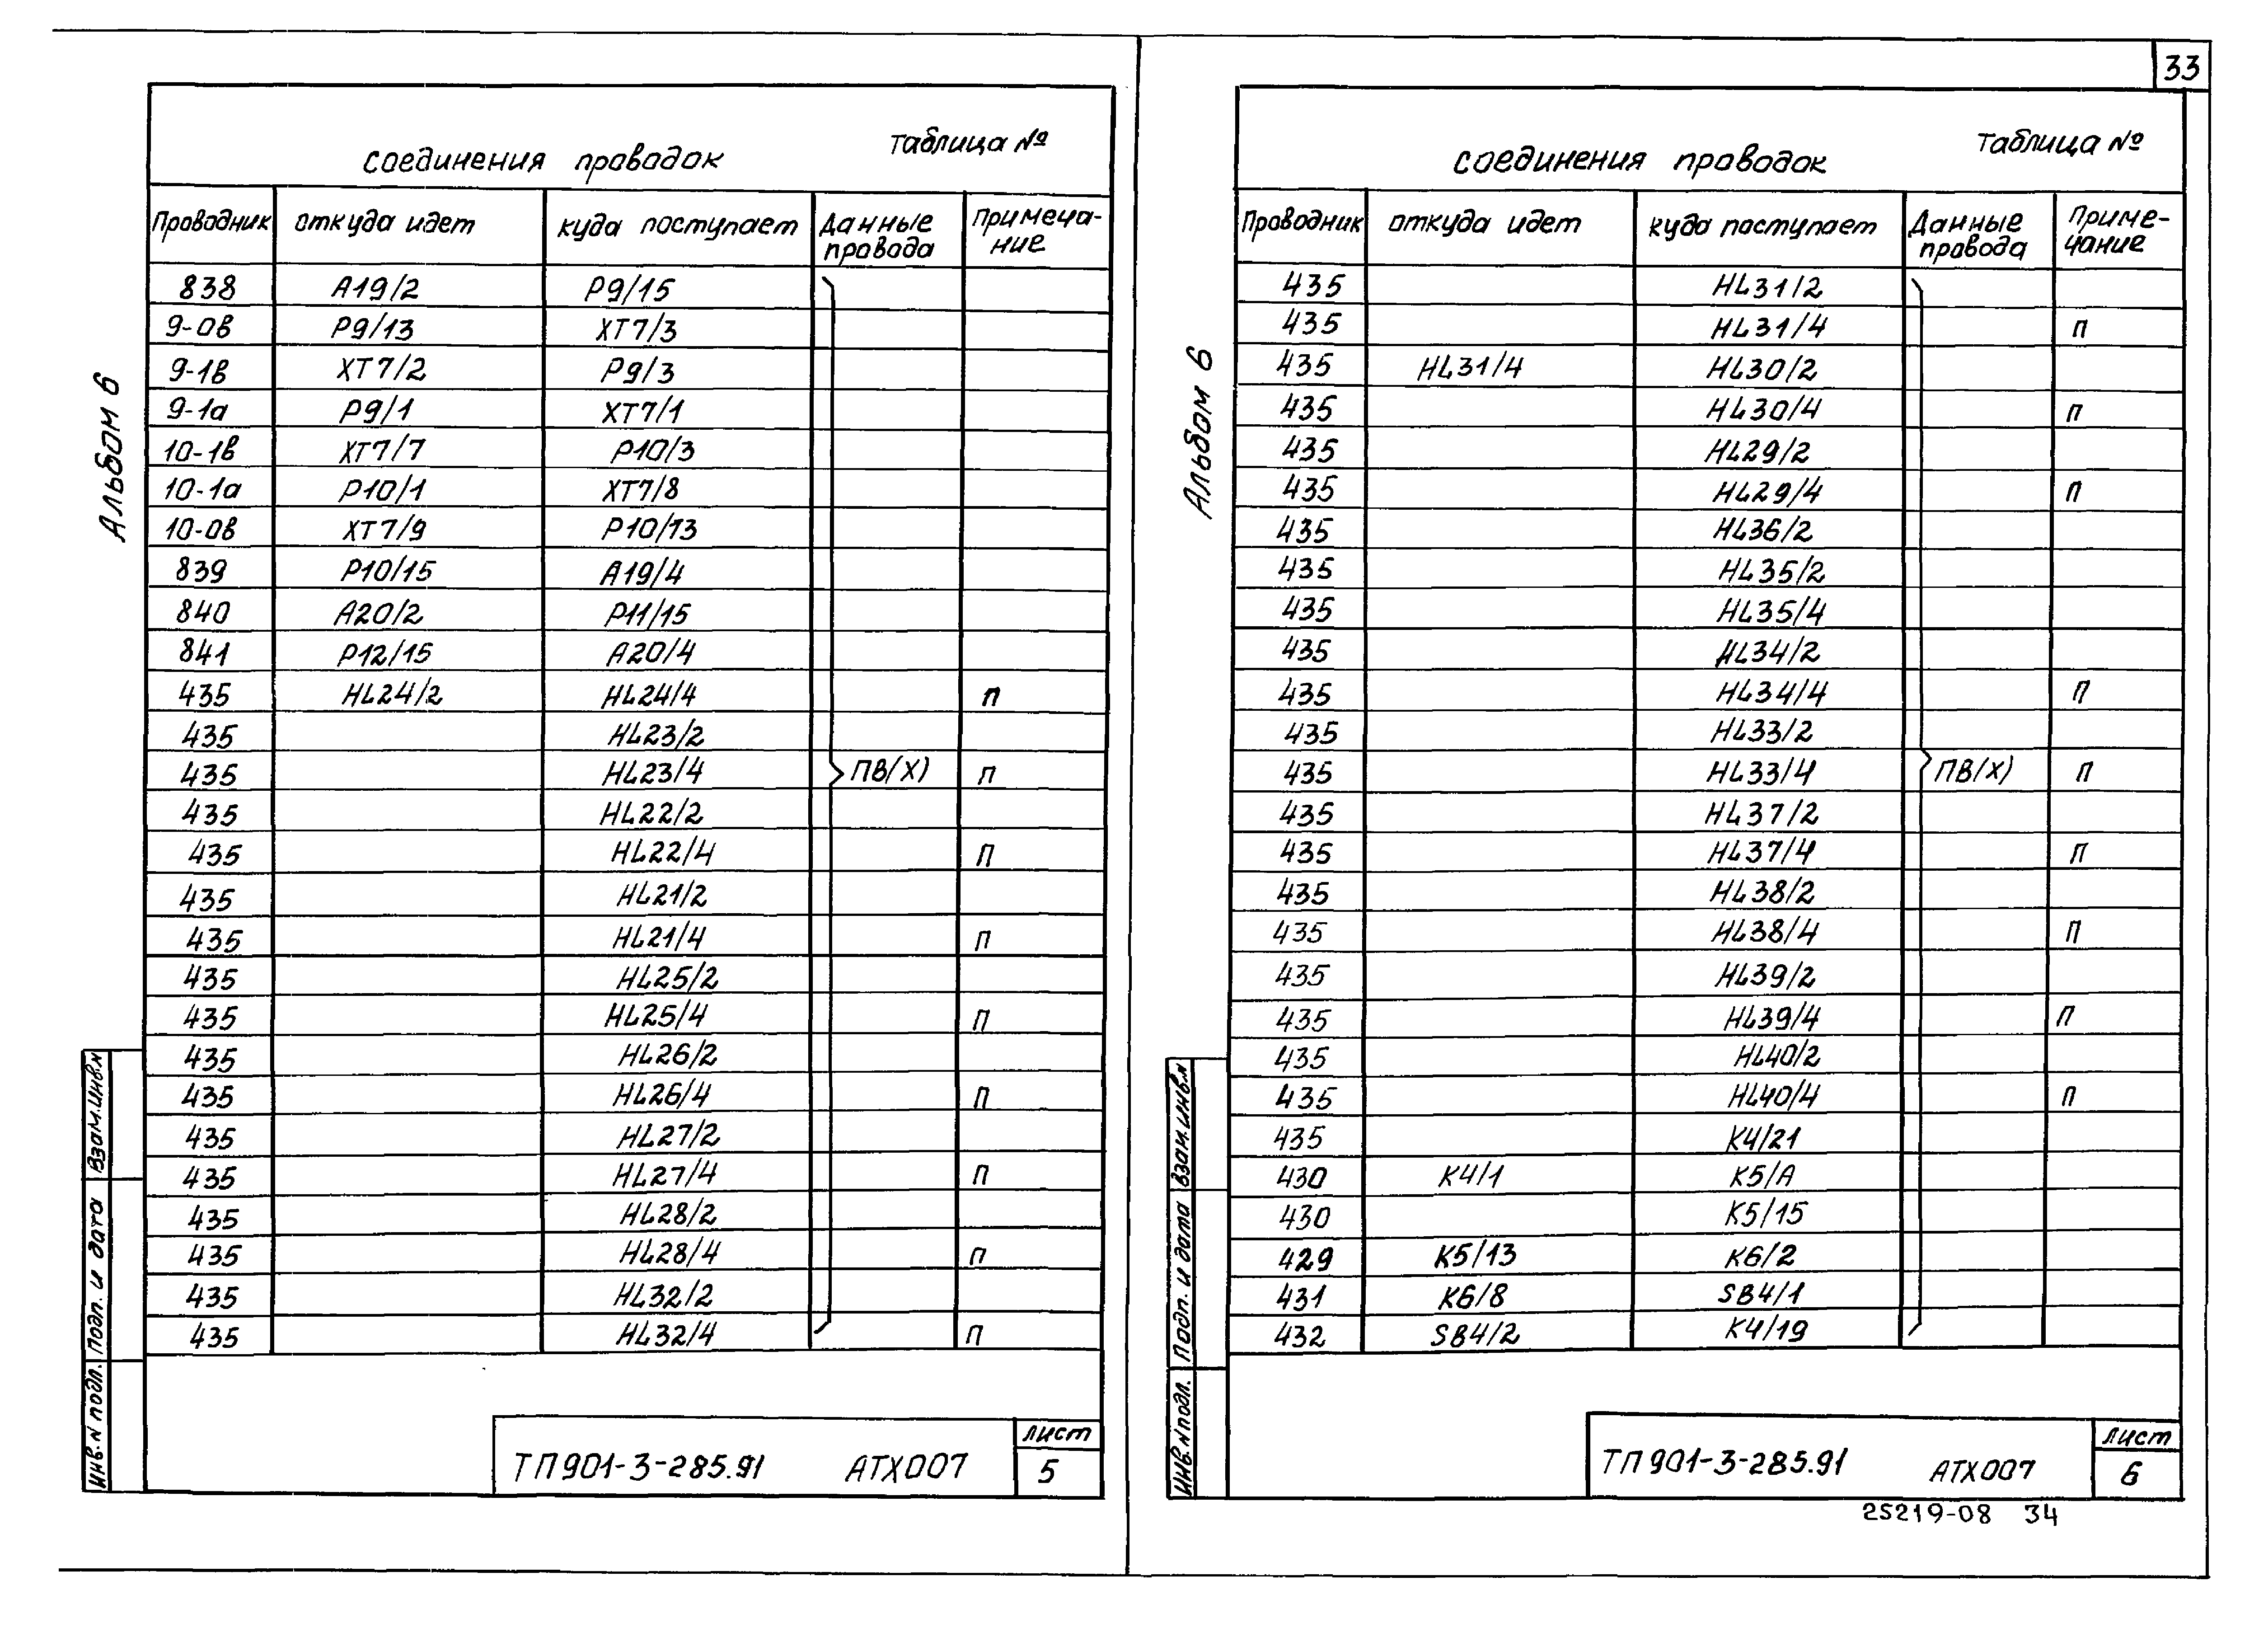 33
Альбом 6
Таблица №
Соединения проводок
Проводник откуда идет куда поступает Данные провода Примечание
838 А19/2 Р9/15
9-0в Р9/13 ХТ7/3
9-1в ХТ7/2 Р9/3
9-1а Р9/1 ХТ7/1
10-1в ХТ7/7 Р10/3
10-1а Р10/1 ХТ7/8
10-0в ХТ7/9 Р10/13
839 Р10/15 А19/4
840 А20/2 Р11/15
841 Р12/15 А20/4
435 HL24/2 HL24/4 П
435 HL23/2
435 HL23/4 ПВ(Х) П
435 HL22/2
435 HL22/4 П
435 HL21/2
435 HL21/4 П
435 HL25/2
435 HL25/4 П
435 HL26/2
435 HL26/4 П
435 HL27/2
435 HL27/4 П
435 HL28/2
435 HL28/4 П
435 HL32/2
435 HL32/4 П
Взам.инв.№
Подп. и дата
Инв.№ подл.
ТП901-3-285.91 АТХ007
лист
5
Альбом 6
Таблица №
Соединения проводок
Проводник откуда идет куда поступает Данные провода Примечание
435 HL31/2
435 HL31/4 П
435 HL31/4 HL30/2
435 HL30/4 П
435 HL29/2
435 HL29/4 П
435 HL36/2
435 HL35/2
435 HL35/4
435 HL34/2
435 HL34/4 П
435 HL33/2
435 HL33/4 ПВ(Х) П
435 HL37/2
435 HL37/4 П
435 HL38/2
435 HL38/4 П
435 HL39/2
435 HL39/4 П
435 HL40/2
435 HL40/4 П
435 К4/21
430 К4/1 К5/А
430 К5/15
429 К5/13 К6/2
431 К6/8 SB4/1
432 SB4/2 К4/19
Взам.инв.№
Подп. и дата
Инв.№ подл.
ТП901-3-285.91 АТХ007
лист
6
25219-08 34